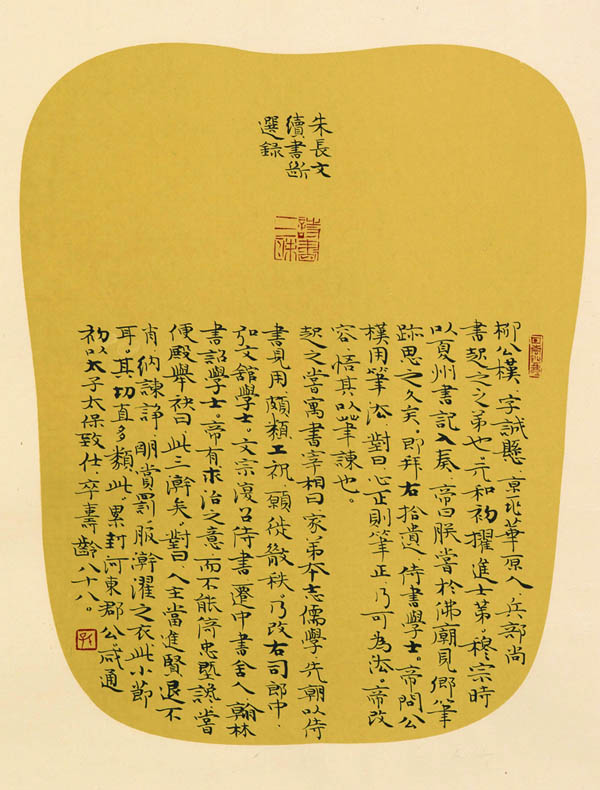 朱長文
續書斷
選錄
柳公權，字誠懸，京兆華原人，兵部尚
書起之之弟也。元和初擢進士第。穆宗時
以夏州書記入奏，帝曰朕嘗於佛廟見卿筆
跡思之久矣，即拜右拾遺侍書學士。帝問公
權用筆法，對曰心正則筆正乃可為法。帝改
容悟其以筆諫也。
起之嘗寓書宰相曰家弟本志儒學先朝以侍
書見用頗類工祝願徙散秩乃改右司郎中，
弘文館學士。文宗復召侍書遷中書舍人翰林
書詔學士。帝有求治之意而不能忠讒嘗
便殿舉袂曰此三澣矣。對曰人主當進賢退不
肖納諫諍明賞罰服澣濯之衣此小節
耳。其切直多類此。累封河東郡公咸通
初以太子太保致仕卒壽齡八十八。